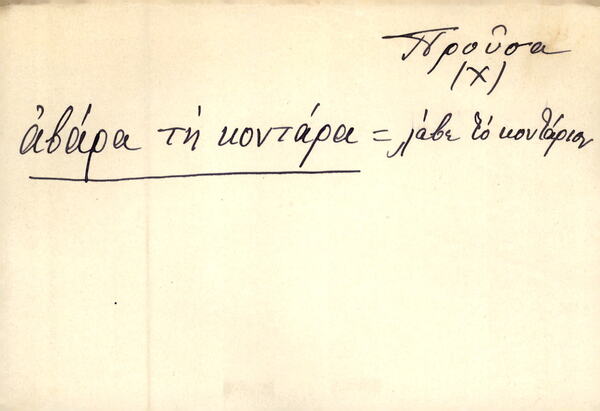 Προῦσα
(Χ)
ἀβάρα τή κοντάρα = λάβε τό κοντάριον